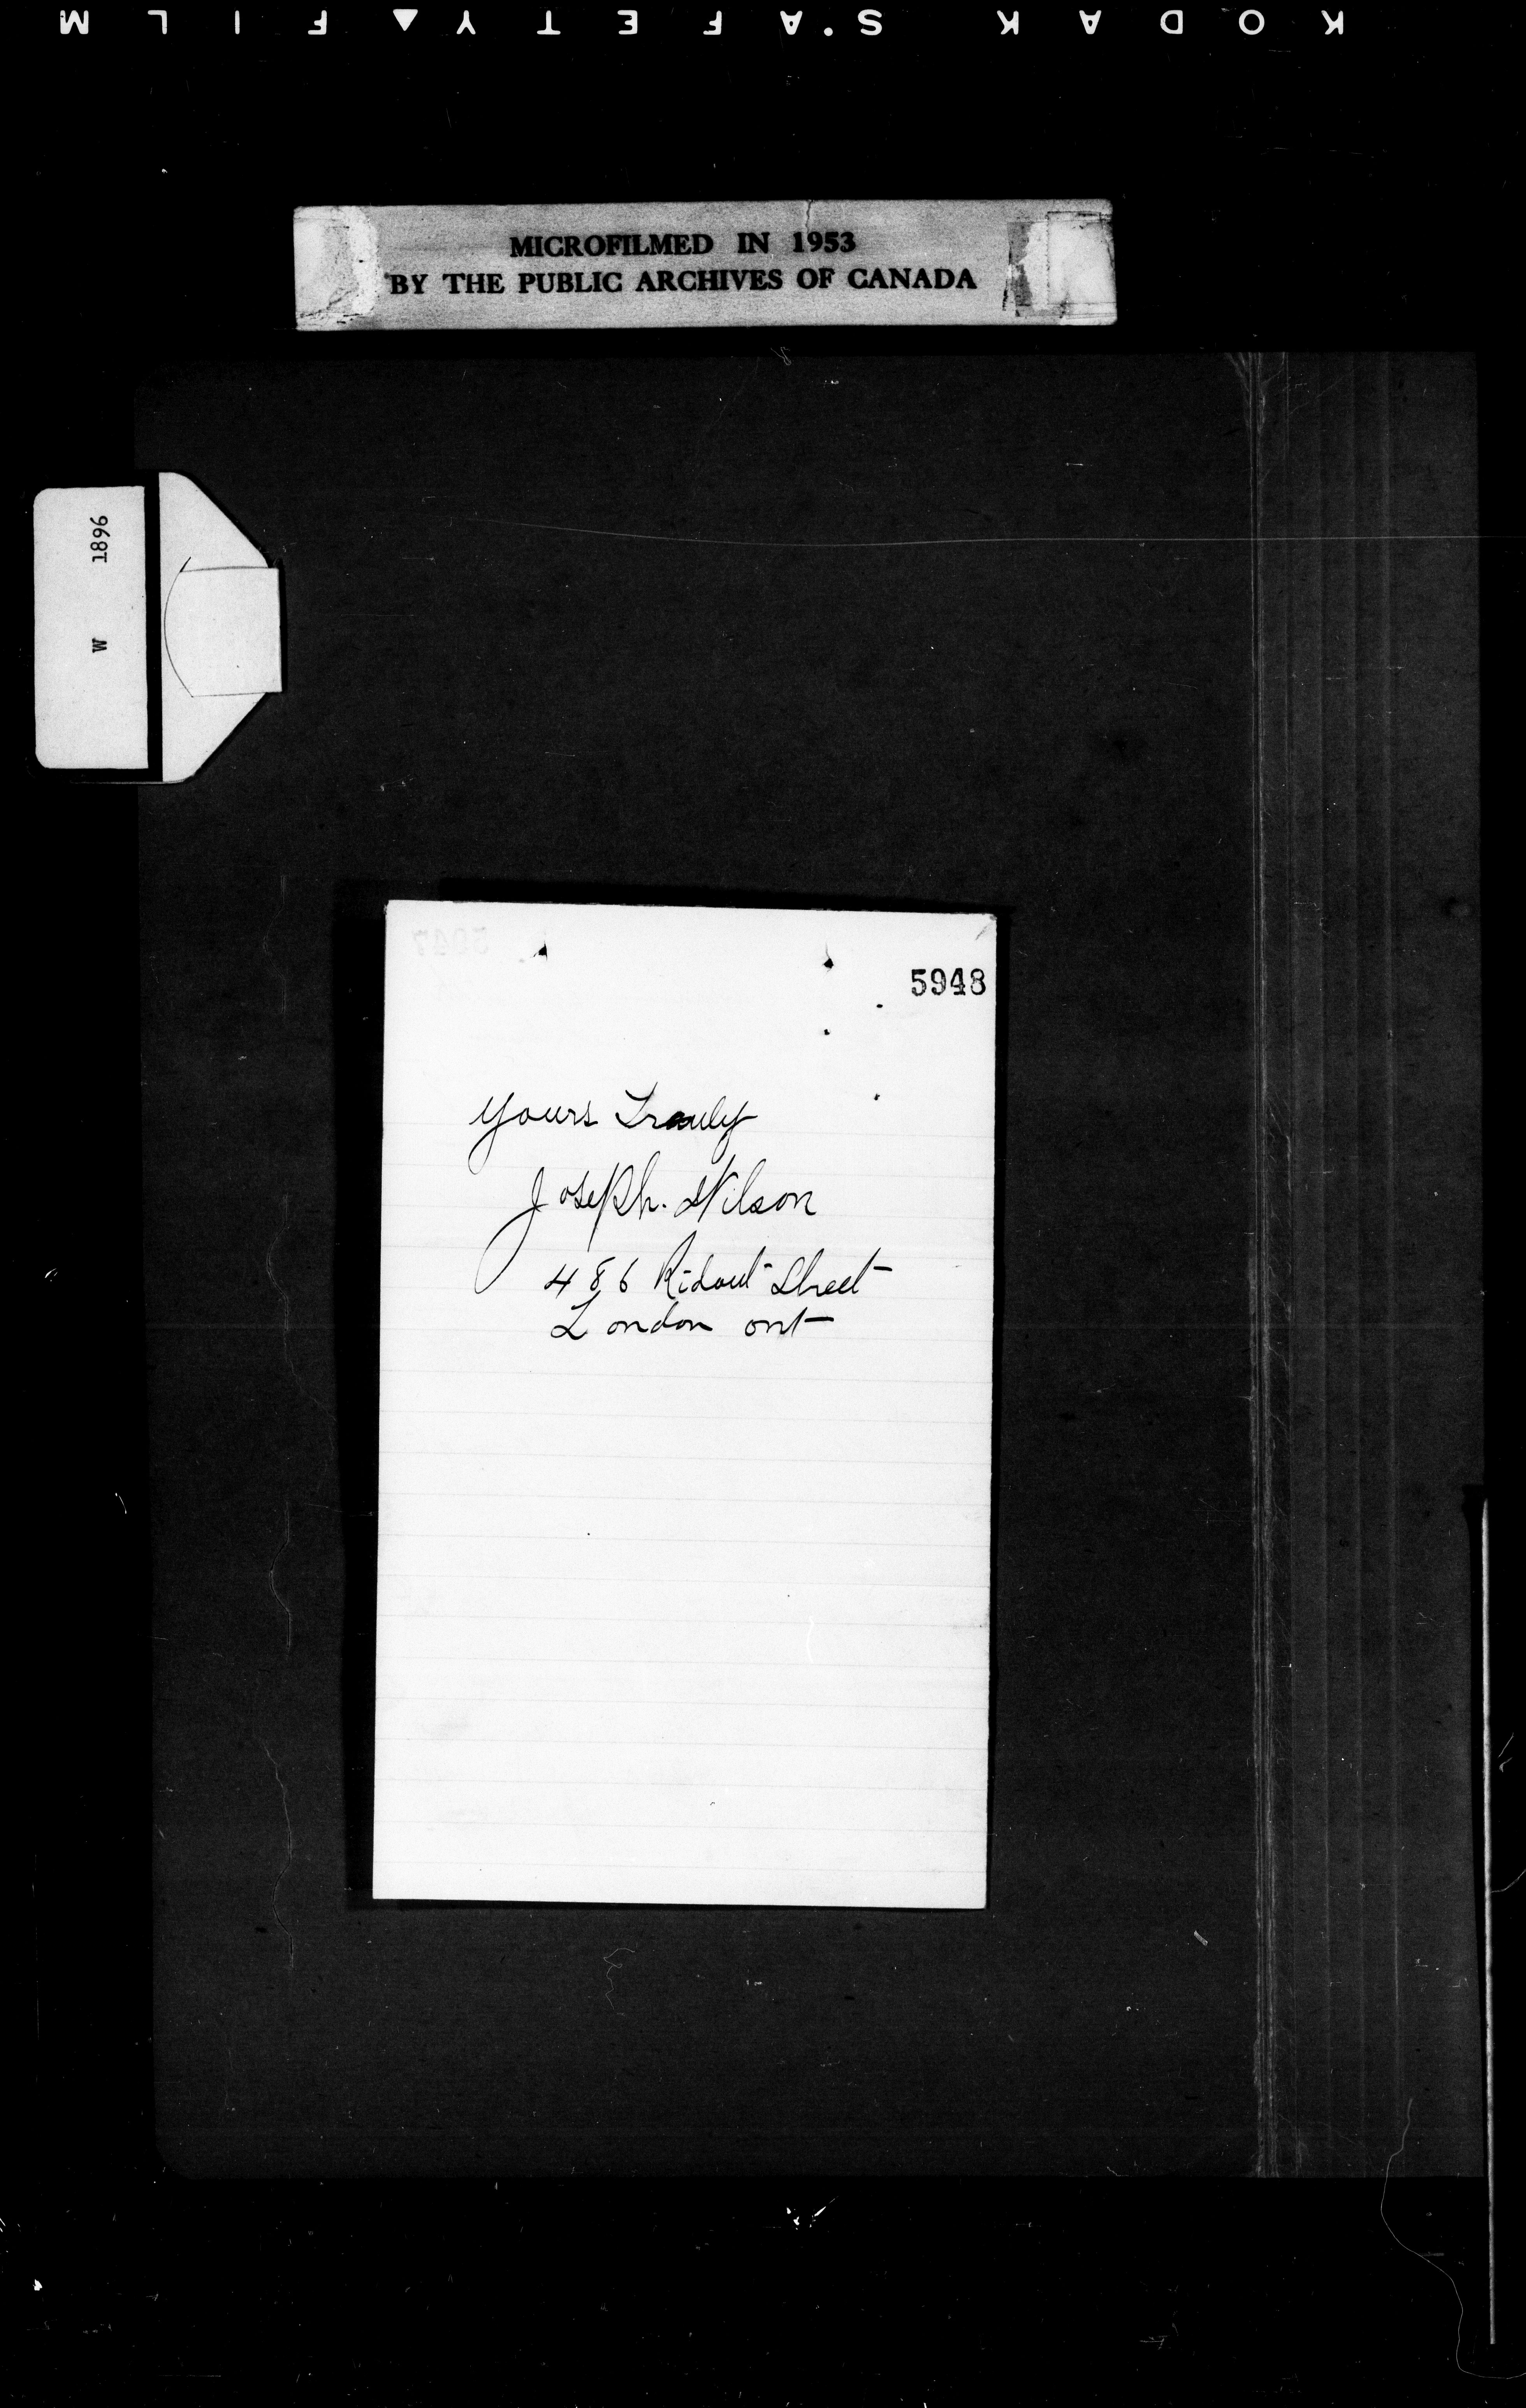 KODAK SAFETY FILM
MICROFILMED IN 1953
BY THE PUBLIC ARCHIVES OF CANADA
W 1896
5948
yours Trauly
Joseph. Wilson
486 Ridout Street
London ont